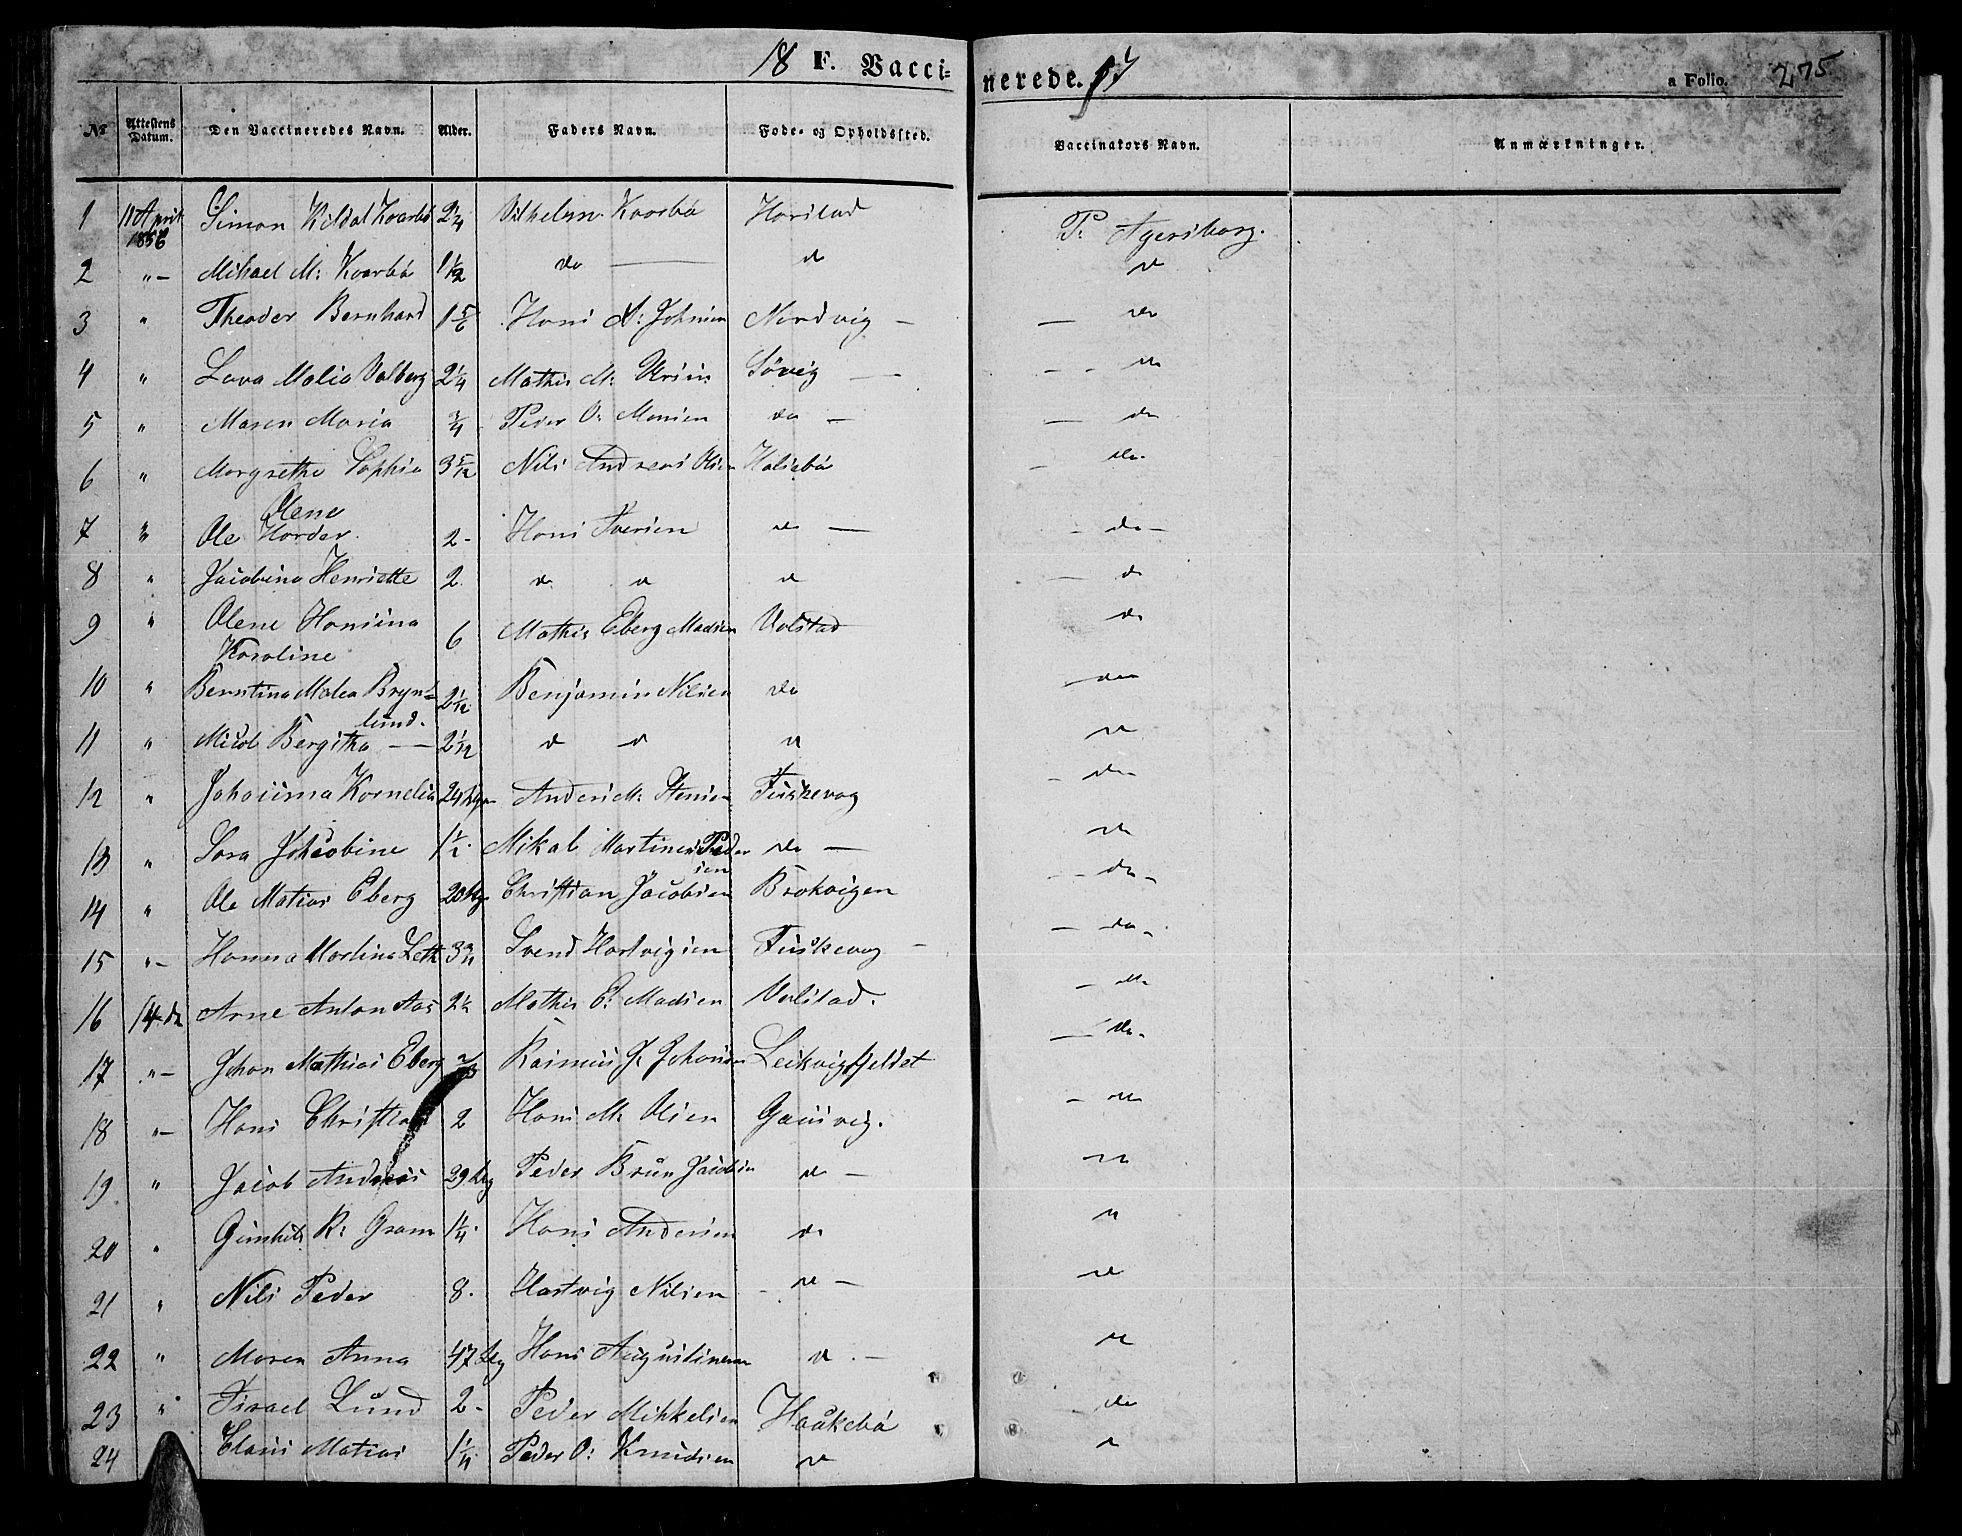 18 F. Vacci-
nerede. 57
a Folio. 275
No Attestens Datum. Den Vaccineredes Navn. Alder. Faders Navn. Føde- og Opholdssted. Vaccinators Navn. Anmærkninger.
1 11 April 1856 Simon Kildal Kaarbø 2 1/4 Vilhelm Kaarbø Harstad P: Agersborg.
2 "- Mikael M: Kaarbø 1 1/2 do d d
3 " Theoder Bernhard 1 5/6 Hans A: Johnsen Nordvig - do
4 " Lava Malia Valberg 2 1/4 Mathis M: Ursin Søvig do
5 " Maren Maria 3/4 Peder O: Monsen do - do
6 " Margrethe Sophia 3 5/12 Nils Andreas Olsen Halsebø do
Olene
7 " Ole Horder. 2- Hans Iversen do - do -
8 " Jacobina Henriette 2 d d d d
9 " Olene Hansina 6 Mathis Eberg Madsen Volstad do
Karoline
10 " Berntina Malea Bryn= 2 1/12 Benjamin Nilsen do do
lund.
11 " Micol Bergitha - 2 1/12 d d d d
12 " Johasima Kornelia 24 Anders M: Stensen Fuskevag do
13 " Sara Jakobine 1 1/2 Mikal Martines Peder do - do
sen
14 " Ole Matias Eberg 20 Christian Jacobsen Brokvigen do -
15 "- Hanna Martina Leth 3 Svend Hartvigsen Fuskevag do -
16 14 do Arne Anton Aas 2 1/2 Mathis E: Madsen Volstad. do
17 "- Johan Mathias Eberg 2/3 Rasmus J: Johansen Leikvigfjeldet do -
18 "- Hans Christian 2 Hans M: Olsen Gausvig. do
19 " Jacob Andreas 29 Peder Brun Jacobsen d - do
20 " Gunhild R: Gram 1 1/4 Hans Andersen do d
21 " Nils Peder 8. Hartvig Nilsen d - d
22 " Maren Anna 47 Hans Augustinesen d - d
23 " Israel Lund 2- Peder Mikkelsen Haukebø do
24 Claus Matias 1 1/4 Peder O: Knudsen d d